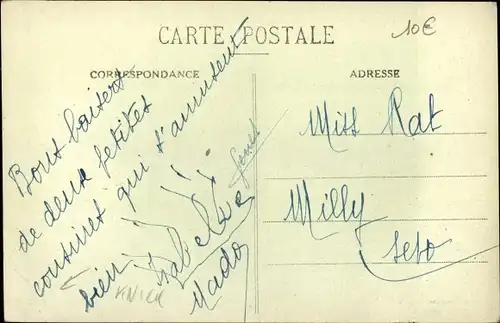 CARTE POSTALE
10€
CORRESPONDANCE
ADRESSE
Bons baisers
de deux petites
cousines qui s'amusent
bien
Mado
Miss Rat
Milly